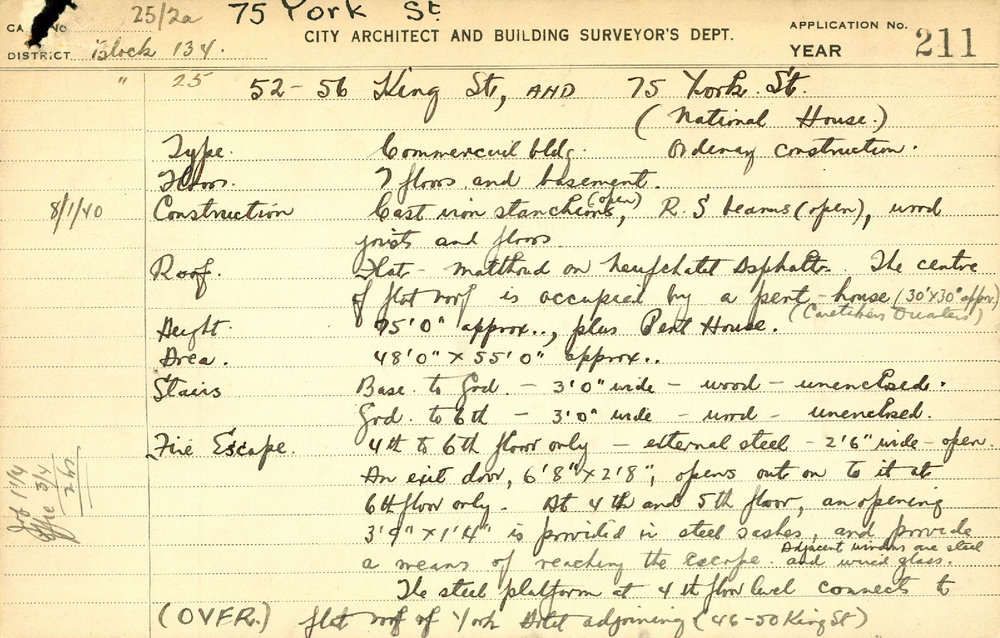 25/2a 75 York St
CARD No
CITY ARCHITECT AND BUILDING SURVEYOR'S DEPT.
APPLICATION No.
DISTRICT Block 134.
YEAR
211
" 25 52-56 King St, AND 75 York. St.
(National House.)
Type. Commercial bldg. Ordinary construction.
Floors. 7 floors and basement.
8/1/40 Construction Cast iron stanchions (open), R.S beams (open), wood
joists and floors
Roof. Flat - matthoid on Neufchatel Asphalt. The centre
of flat roof is occupied by a pent-house (30'x30' appr.)
(Caretakers Quarters)
Height. 95'0" approx.., plus Pent House.
Area. 48'0" x 55'0" approx..
Stairs Base. to Grd. - 3'0" wide - wood - unenclosed.
Grd. to 6th - 3'0" wide - wood - unenclosed.
Fire Escape. 4th to 6th floor only - external steel - 2'6" wide - open.
An exit door, 6'8" x 2'8", opens out on to it at
6th floor only. At 4th and 5th floor, an opening
3'9" x 1'4" is provided in steel sashes, and provide
a means of reaching the escape. Adjacent windows are steel
and wired glass.
The steel platform at 4th floor level connects to
(OVER.) flat roof of York Hotel adjoining (46-50 King St)